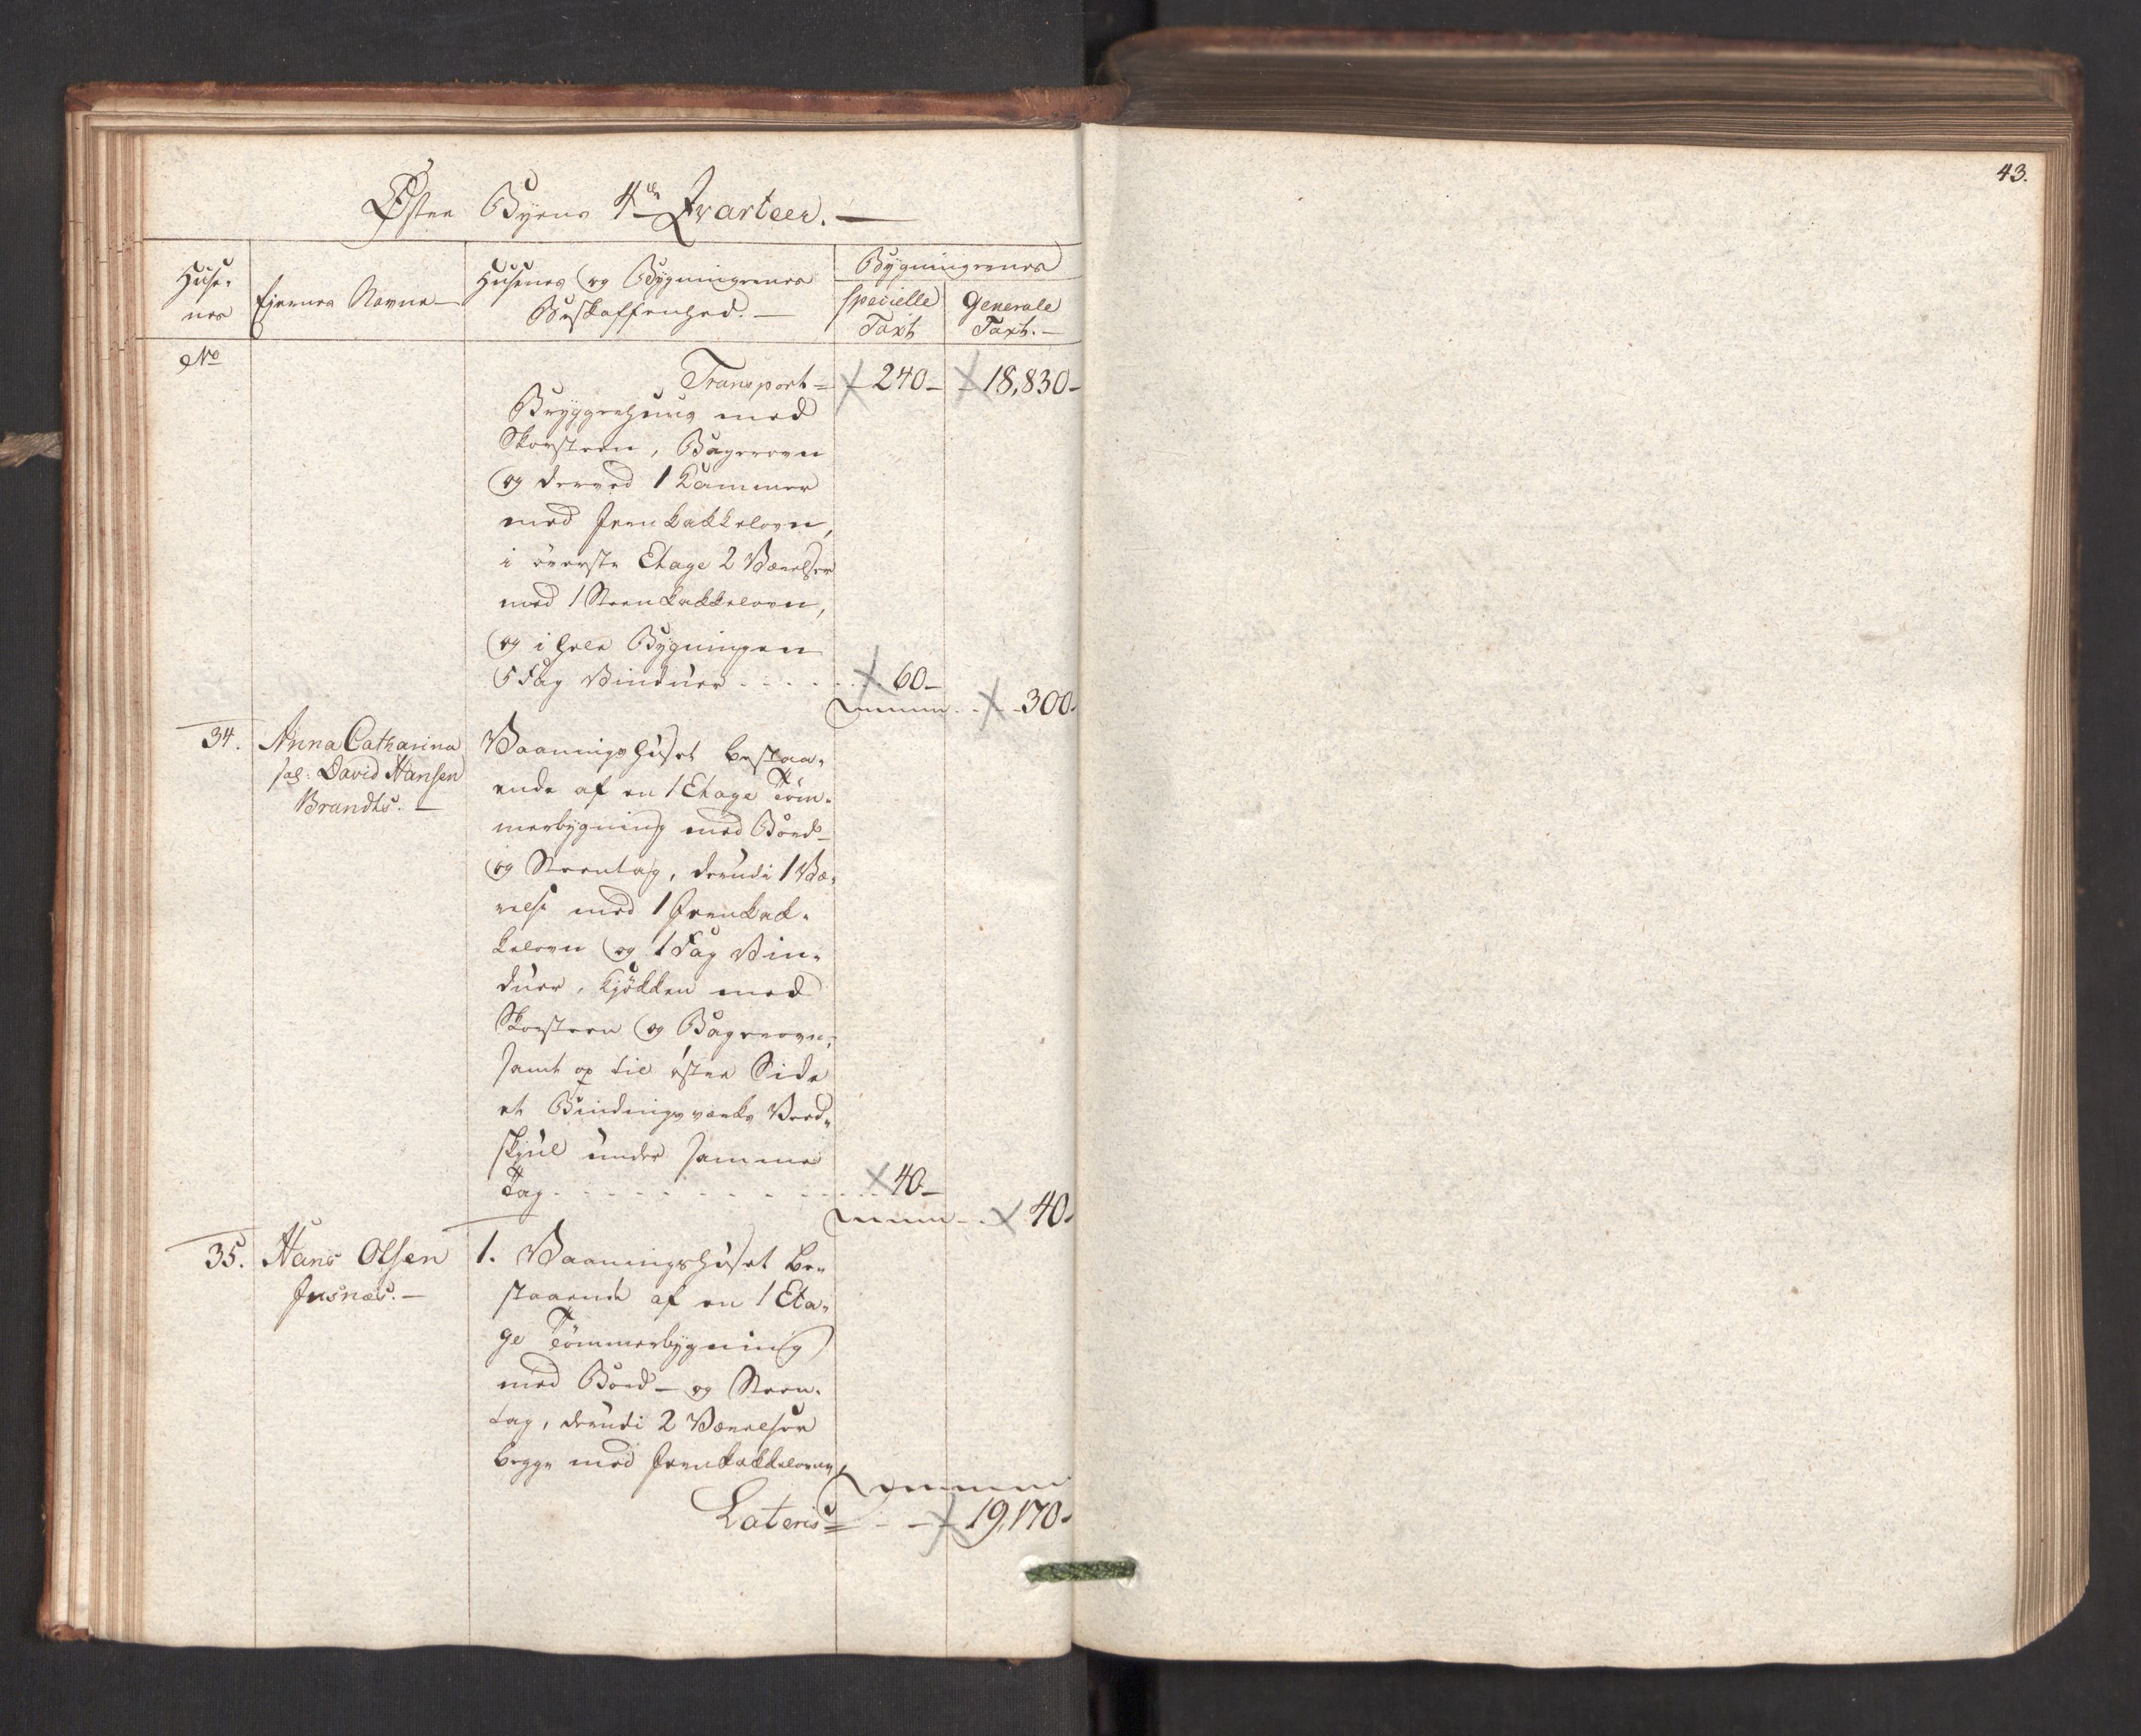 Östre Byens 4de Qvarteer.
Huse-
nes
Ejernes Navne
Husenes og Bygningernes
Beskaffenhed.
Bygningernes
specielle
Taxt
Generale
Taxt.
No
Transport = 240 - 18,830 -
Bryggerhuus med
Skorsteen, Bagerovn
og derved 1 Kammer
med Jernkakkelovn,
i överste Etage 2 Værelser
med 1 Steenkakkelovn,
og i hele Bygningen
5 Fag Vinduer . . . . . 60 -
300.
34. Anna Catharina
sal: David Hansen
Brandts. -
Vaaningshuset bestaa-
ende af en 1 Etage Töm-
merbygning med Bord-
og Steentag, derudi 1 Væ-
relse med 1 Jernkak-
kelovn og 1 Fag Vin-
duer, Kjökken med
Skorsteen og Bagerovn,
samt op til östre Side
et Bindingsværks Veed-
skjul under samme
Tag . . . . . . . . . . . . 40 -
40.
35. Hans Olsen
1. Vaaningshuset be-
staaende af en 1 Eta-
ge Tömmerbygning
med Bord- og Steen-
tag, derudi 2 Værelser
begge med Jernkakkelovne,
Lateris = - - 19,170.
43.